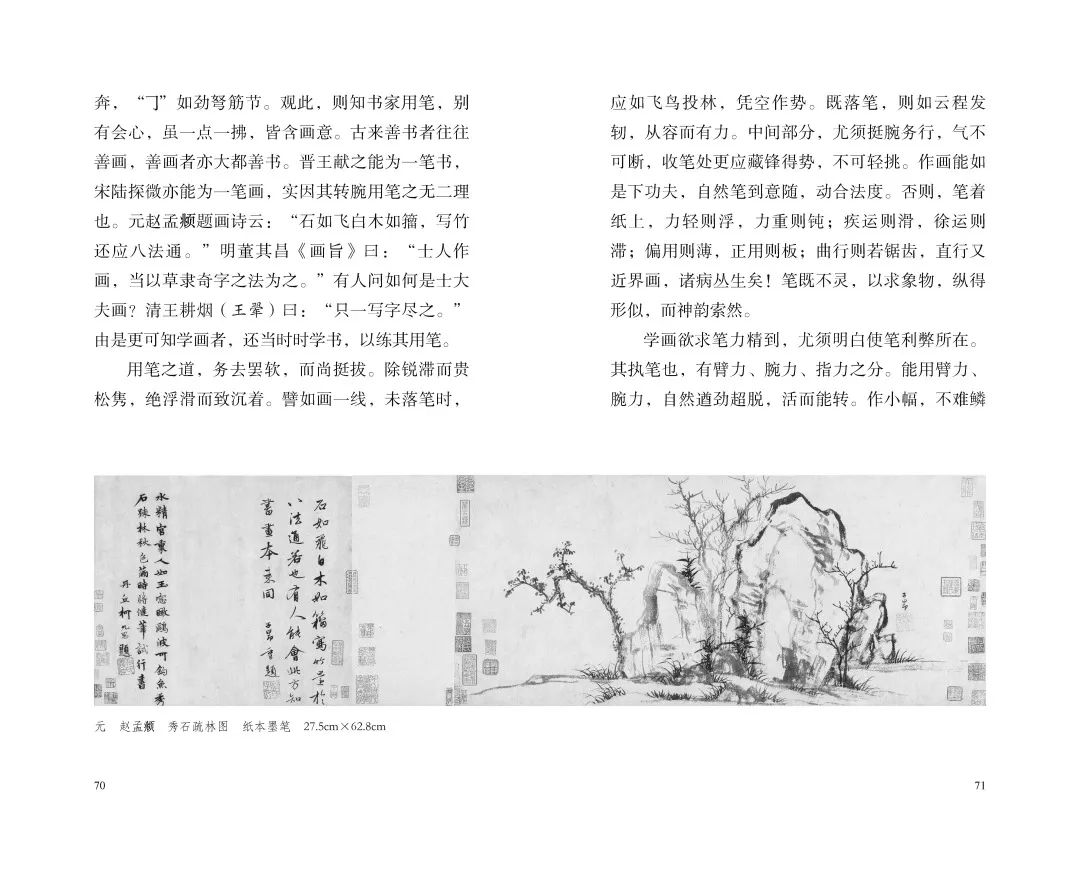 奔，“𠃌”如劲弩筋节。观此，则知书家用笔，别
有会心，虽一点一拂，皆含画意。古来善书者往往
善画，善画者亦大都善书。晋王献之能为一笔书，
宋陆探微亦能为一笔画，实因其转腕用笔之无二理
也。元赵孟𫖯题画诗云：“石如飞白木如籀，写竹
还应八法通。”明董其昌《画旨》曰：“士人作
画，当以草隶奇字之法为之。”有人问如何是士大
夫画？清王耕烟（王翚）曰：“只一写字尽之。”
由是更可知学画者，还当时时学书，以练其用笔。
用笔之道，务去罢软，而尚挺拔。除锐滞而贵
松隽，绝浮滑而致沉着。譬如画一线，未落笔时，
应如飞鸟投林，凭空作势。既落笔，则如云程发
轫，从容而有力。中间部分，尤须挺腕务行，气不
可断，收笔处更应藏锋得势，不可轻挑。作画能如
是下功夫，自然笔到意随，动合法度。否则，笔着
纸上，力轻则浮，力重则钝；疾运则滑，徐运则
滞；偏用则薄，正用则板；曲行则若锯齿，直行又
近界画，诸病丛生矣！笔既不灵，以求象物，纵得
形似，而神韵索然。
学画欲求笔力精到，尤须明白使笔利弊所在。
其执笔也，有臂力、腕力、指力之分。能用臂力、
腕力，自然遒劲超脱，活而能转。作小幅，不难鳞
子昂
石如飛白木如籀寫竹還於
八法通若也有人能會此方知
書畫本來同 子昂重題
水精宮裏人如玉窓瞰鷗波可釣魚秀
石疎林秋色滿時將健筆試行書
丹丘柯九思題
元 赵孟𫖯 秀石疏林图 纸本墨笔 27.5cm×62.8cm
70
71